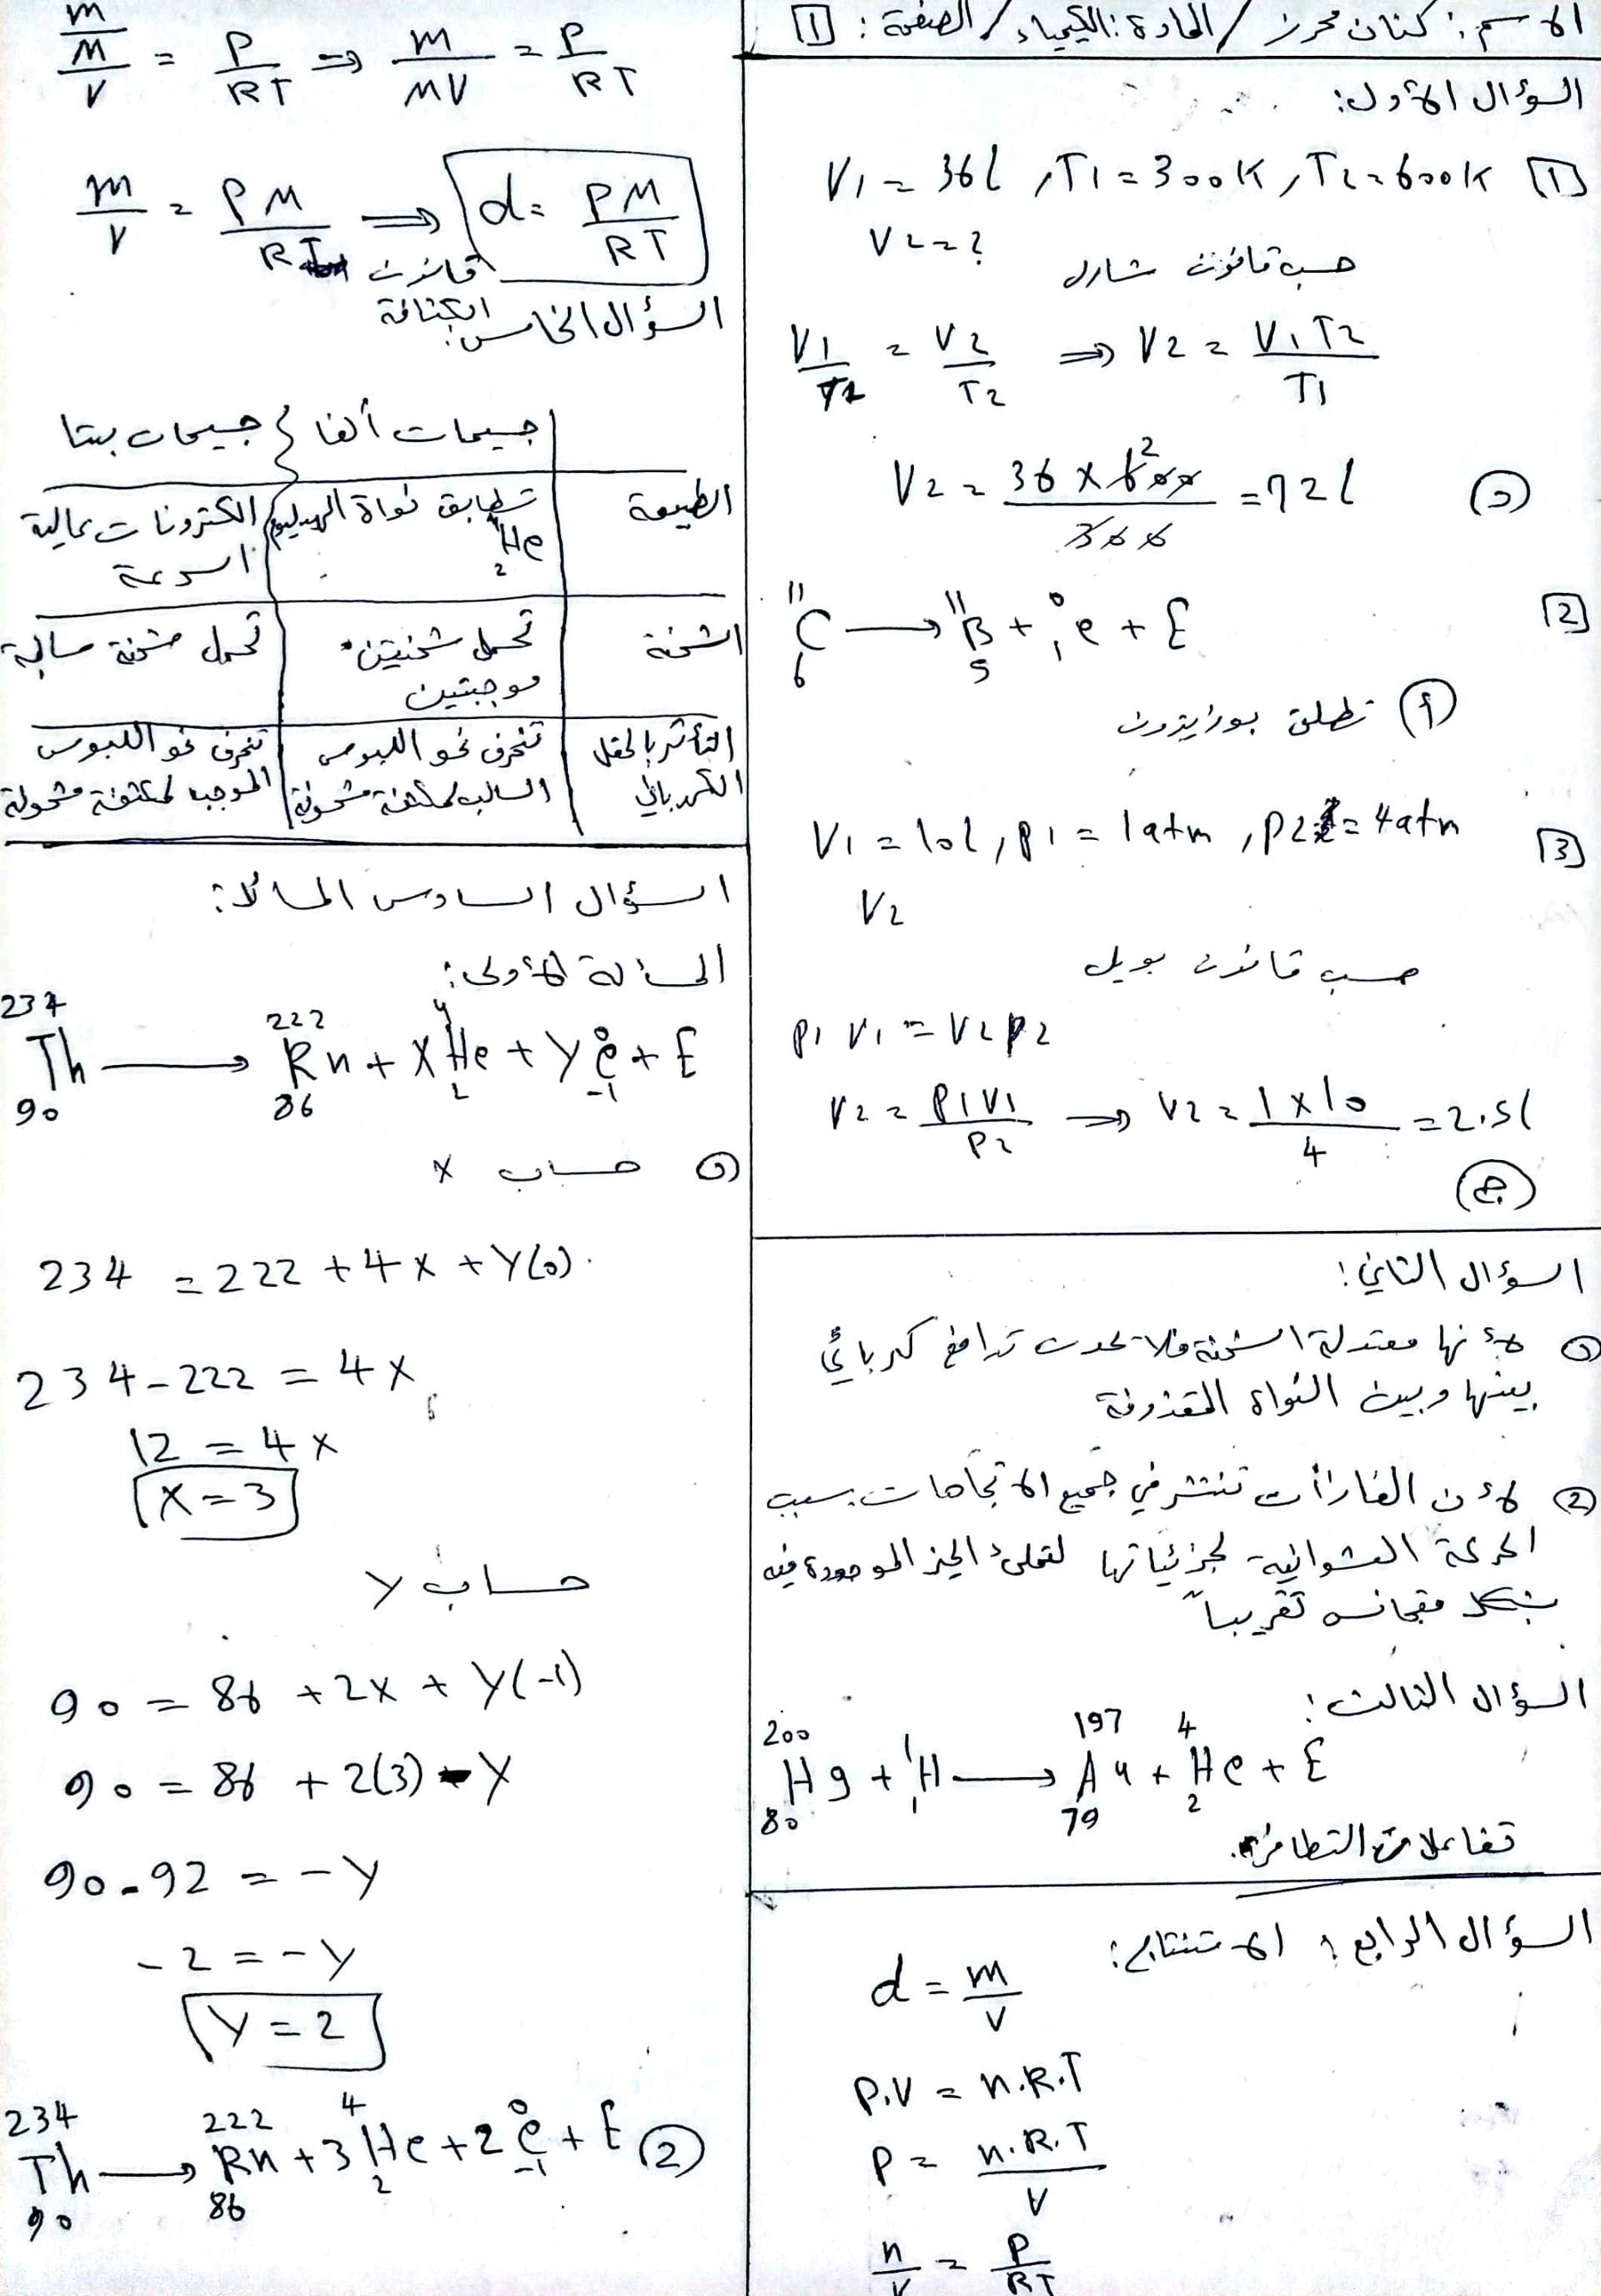 الاسم: كنان محرز / المادة: الكيمياء / الصفحة: 1
السؤال الأول:
1 V1 = 36l , T1 = 300K , T2 = 600K
V2 = ?
حسب قانون شارل
V1/T1 = V2/T2 ⇒ V2 = V1T2/T1
V2 = 36 × 600/300 = 72l
2 ¹¹₆C → ¹¹₅B + ⁰₁e + E
أ تطلق بوزيترون
3 V1 = 10l , P1 = 1atm , P2 = 4atm
V2
حسب قانون بويل
P1 V1 = V2 P2
V2 = P1V1/P2 ⇒ V2 = 1 × 10/4 = 2.5l
ج
السؤال الثاني:
① لأنها معتدلة الشحنة فلا يحدث تدافع كهربائي
بينها وبين النواة المقذوفة
② لأن الغازات تنتشر في جميع الاتجاهات بسبب
الحركة العشوائية لجزيئاتها لتملئ الحيز الموجودة فيه
بشكل متجانس تقريباً
السؤال الثالث:
²⁰⁰₈₀Hg + ¹₁H → ¹⁹⁷₇₉Au + ⁴₂He + E
تفاعلات التطافر.
السؤال الرابع: الاستنتاج:
d = m/V
P.V = n.R.T
P = n.R.T/V
n/V = P/RT
m/M/V = P/RT ⇒ m/MV = P/RT
m/V = PM/RT ⇒ d = PM/RT
قانون الكثافة
السؤال الخامس:
جسيمات ألفا جسيمات بيتا
الطبيعة تطابق نواة الهيليوم ⁴₂He الكترونات عالية السرعة
الشحنة تحمل شحنتين موجبتين تحمل شحنة سالبة
التأثر بالحقل الكهربائي تنحرف نحو اللبوس السالب لمكثفة مشحونة تنحرف نحو اللبوس الموجب لمكثفة مشحونة
السؤال السادس المسائل:
المسألة الأولى:
²³⁴₉₀Th → ²²²₈₆Rn + X⁴₂He + Y⁰₋₁e + E
① حساب X
234 = 222 + 4X + Y(0)
234 - 222 = 4X
12 = 4X
X = 3
حساب Y
90 = 86 + 2X + Y(-1)
90 = 86 + 2(3) - Y
90 - 92 = - Y
- 2 = - Y
Y = 2
²³⁴₉₀Th → ²²²₈₆Rn + 3⁴₂He + 2⁰₋₁e + E ②